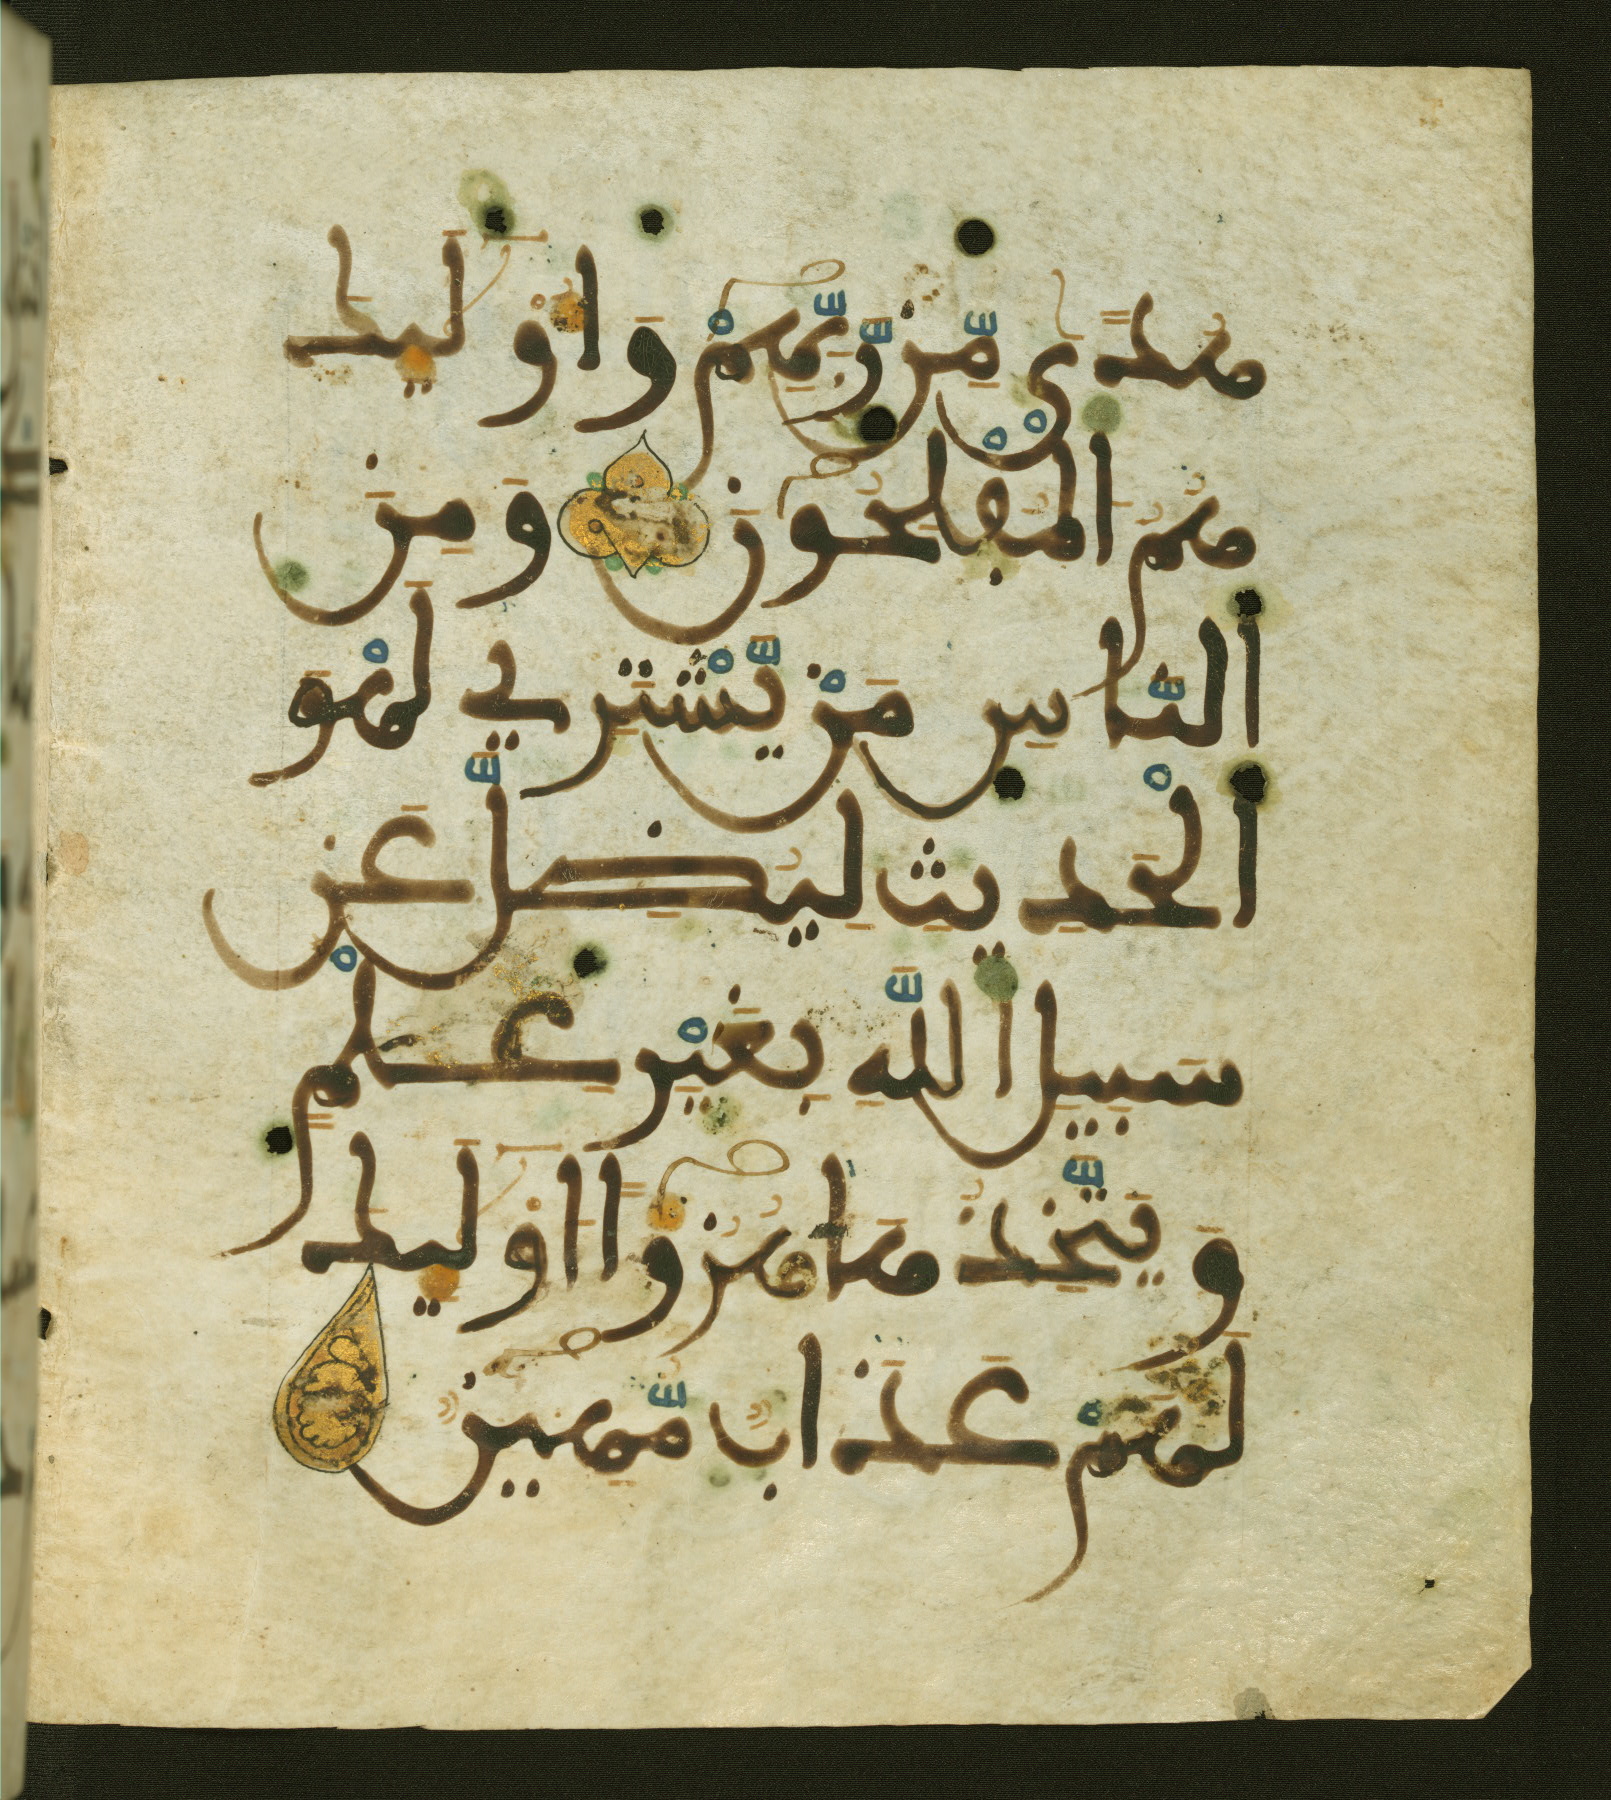 هُدًى مِّن رَّبِّهِمْ وَأُوْلَٰٓئِكَ
هُمُ ٱلْمُفْلِحُونَ وَمِنَ
ٱلنَّاسِ مَنْ يَّشْتَرِي لَهْوَ
ٱلْحَدِيثِ لِيُضِلَّ عَن
سَبِيلِ ٱللَّهِ بِغَيْرِ عِلْمٍ
وَيَتَّخِذُهَا هُزُؤًا أُوْلَٰٓئِكَ
لَهُمْ عَذَابٌ مُّهِينٌ